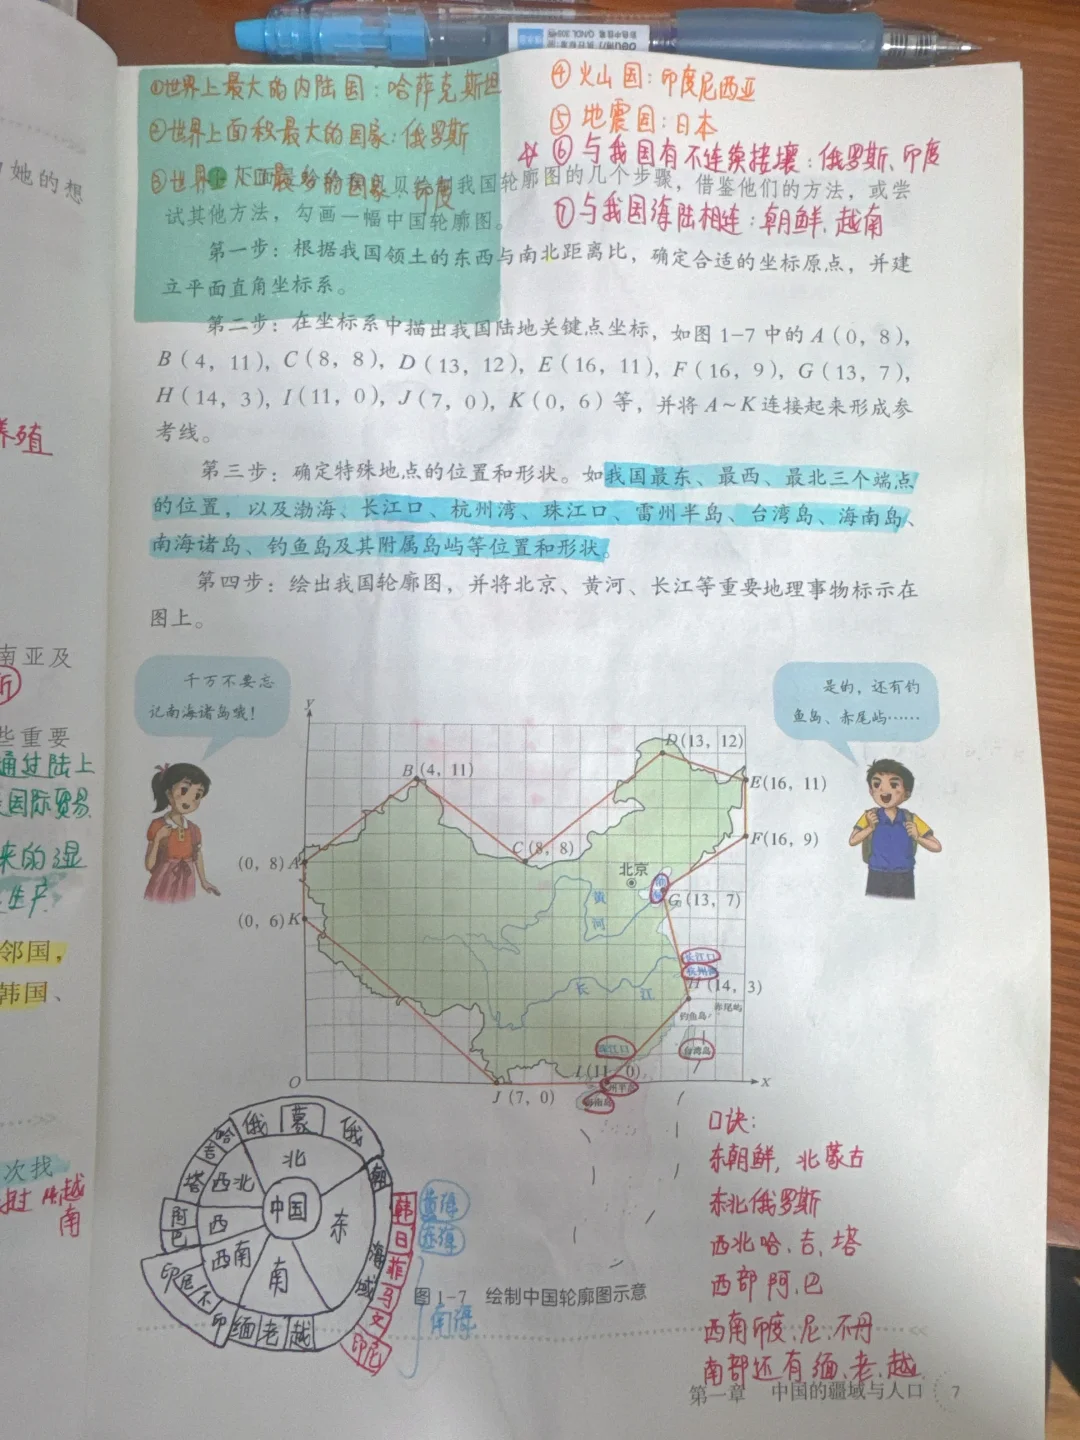 ①世界上最大的内陆国：哈萨克斯坦
②世界上面积最大的国家：俄罗斯
④火山国：印度尼西亚
⑤地震国：日本
⑥与我国有不连续接壤：俄罗斯、印度
⑦与我国海陆相连：朝鲜、越南
制我国轮廓图的几个步骤，借鉴他们的方法，或尝
试其他方法，勾画一幅中国轮廓图。
第一步：根据我国领土的东西与南北距离比，确定合适的坐标原点，并建
立平面直角坐标系。
第二步：在坐标系中描出我国陆地关键点坐标，如图1-7中的A（0，8），
B（4，11），C（8，8），D（13，12），E（16，11），F（16，9），G（13，7），
H（14，3），I（11，0），J（7，0），K（0，6）等，并将A~K连接起来形成参
考线。
第三步：确定特殊地点的位置和形状。如我国最东、最西、最北三个端点
的位置，以及渤海、长江口、杭州湾、珠江口、雷州半岛、台湾岛、海南岛、
南海诸岛、钓鱼岛及其附属岛屿等位置和形状。
第四步：绘出我国轮廓图，并将北京、黄河、长江等重要地理事物标示在
图上。
千万不要忘
记南海诸岛哦！
是的，还有钓
鱼岛、赤尾屿……
y
D（13，12）
B（4，11）
E（16，11）
F（16，9）
C（8，8）
（0，8）A
北京
黄
河
G（13，7）
（0，6）K
长江口
杭州湾
H（14，3）
长
江
赤尾屿
钓鱼岛
珠江口
台湾岛
I（11，0）
O
x
J（7，0）
海南岛
俄 蒙 俄
哈 吉 塔
阿 巴
印 尼 不 印
缅 老 越
朝
北
西北
西
西南
南
东
中国
海域
韩
日
菲
马
文
印尼
黄海
东海
南海
图1-7 绘制中国轮廓图示意
口诀：
东朝鲜，北蒙古
东北俄罗斯
西北哈、吉、塔
西部阿、巴
西南印度、尼、不丹
南部还有缅、老、越
第一章 中国的疆域与人口 7
她的想
养殖
南亚及
些重要
通过陆上
国际贸易
来的湿
生产
邻国，
韩国、
次找
越
南